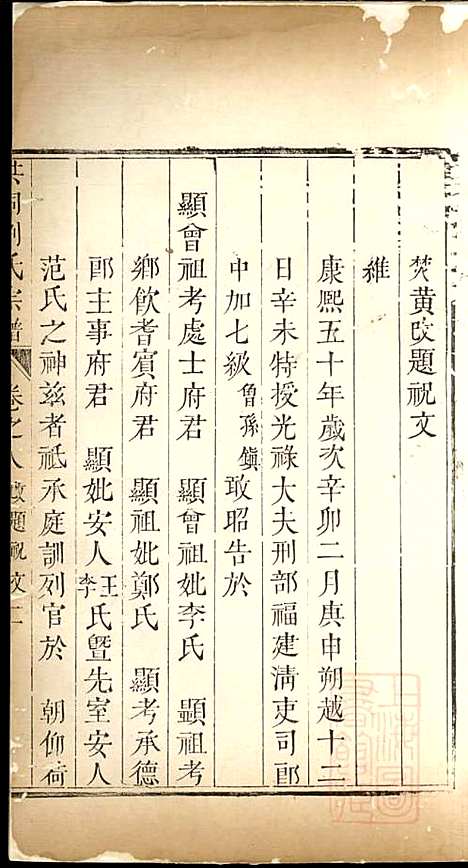 焚黄改題祝文
維
康熙五十年歲次辛卯二月庚申朔越十二
日辛未特授光祿大夫刑部福建清吏司郎
中加七級魯孫鎮敢昭告於
顯曾祖考處士府君 顯曾祖妣李氏 顯祖考
鄉飲耆賓府君 顯祖妣鄭氏 顯考承德
郎主事府君 顯妣安人王李氏暨先室安人
范氏之神兹者祗承庭訓列官於 朝仰荷
洪洞劉氏宗譜 卷之八 改題祝文 二